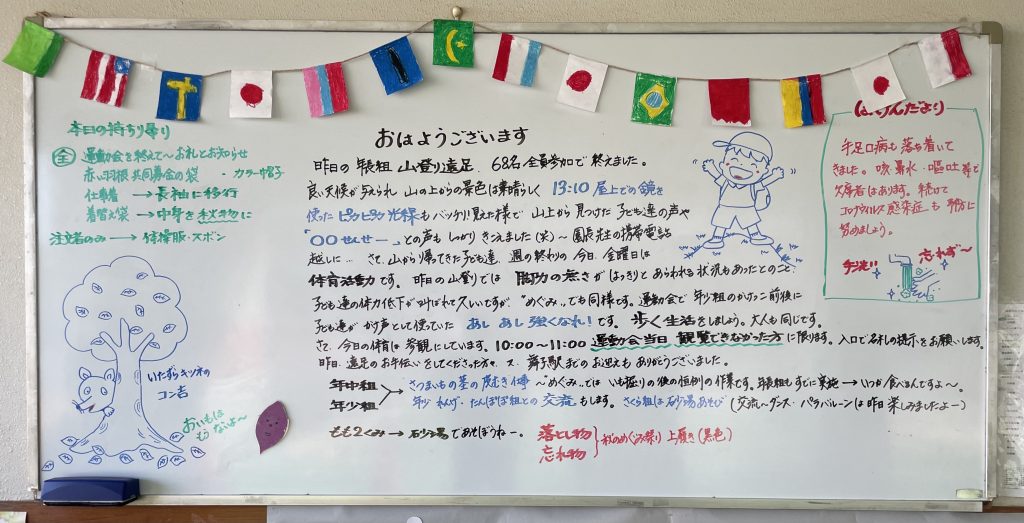 本日の持ち帰り
全 運動会を終えて〜お礼とお知らせ
赤い羽根共同募金の袋 ・カラー帽子
仕事着 → 長袖に移行
着替え袋 → 中身を秋物に
注文者のみ → 体操服・ズボン
いたずらキツネの
コン吉
おいもは
もうないよ〜
おはようございます
昨日の年長組山登り遠足、68名全員参加で終えました。
良い天候が与えられ 山の上からの景色は素晴らしく 13:10 屋上での鏡を
使ったピカピカ光線もバッチリ見えた様で 山上から見つけた子ども達の声や
「〇〇せんせー」との声もしっかりきこえました(笑)〜園長先生の携帯電話
越しに… さて、山から帰ってきた子ども達、週の終わりの今日、金曜日は
体育活動です。昨日の山登りでは 脚力の無さがはっきりとあらわれる状況もあったとのこと
子ども達の体力低下が叫ばれて久しいですが "めぐみ"でも同様です。運動会で年少組のかけっこ前後に
子ども達がかけ声として使っていた あし あし 強くなれ!です。歩く生活をしましょう。大人も同じです。
さて、今日の体育は参観にしています。10:00〜11:00 運動会当日観覧できなかった方に限ります。入口で名札の提示をお願いします。
昨日、遠足のお手伝いをしてくださった方々、又、舞子駅までのお迎えもありがとうございました。
年中組
年少組
さつまいもの茎の皮むき仕事〜めぐみ〜では いも掘りの後の恒例の作業です。年長組もすでに実施 → いつか食べるんですよ〜。
年少 れんげ・たんぽぽ組との交流もします。さくら組は砂場あそび(交流〜ダンス・パラバルーンは昨日楽しみましたよー)
もも2くみ → 砂場であそぼうねー。
落とし物
忘れ物
秋のめぐみ祭り 上履き(黒色)
ほけんだより
手足口病も落ち着いて
きました。咳・鼻水・嘔吐等で
欠席者はあります。続けて
コロナウィルス感染症も予防に
努めましょう。
手洗い
忘れず〜